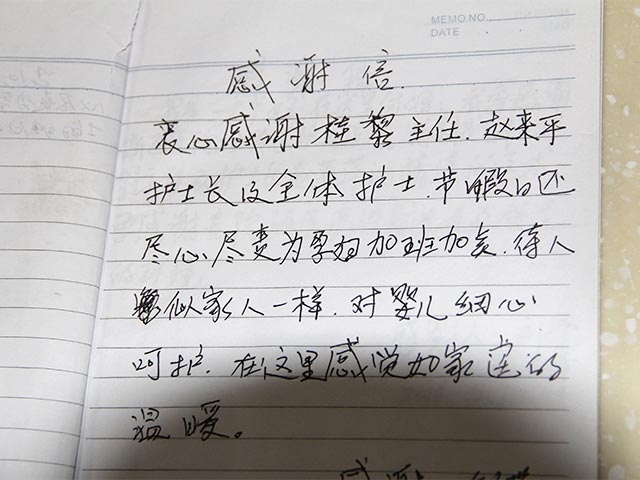 MEMO NO.
DATE
感谢信.
衷心感谢桂黎主任.赵来平
护士长及全体护士.节假日还
尽心.尽责为孕妇加班加点.待人
似家人一样.对婴儿细心
呵护.在这里感觉如家庭的
温暖。
感谢